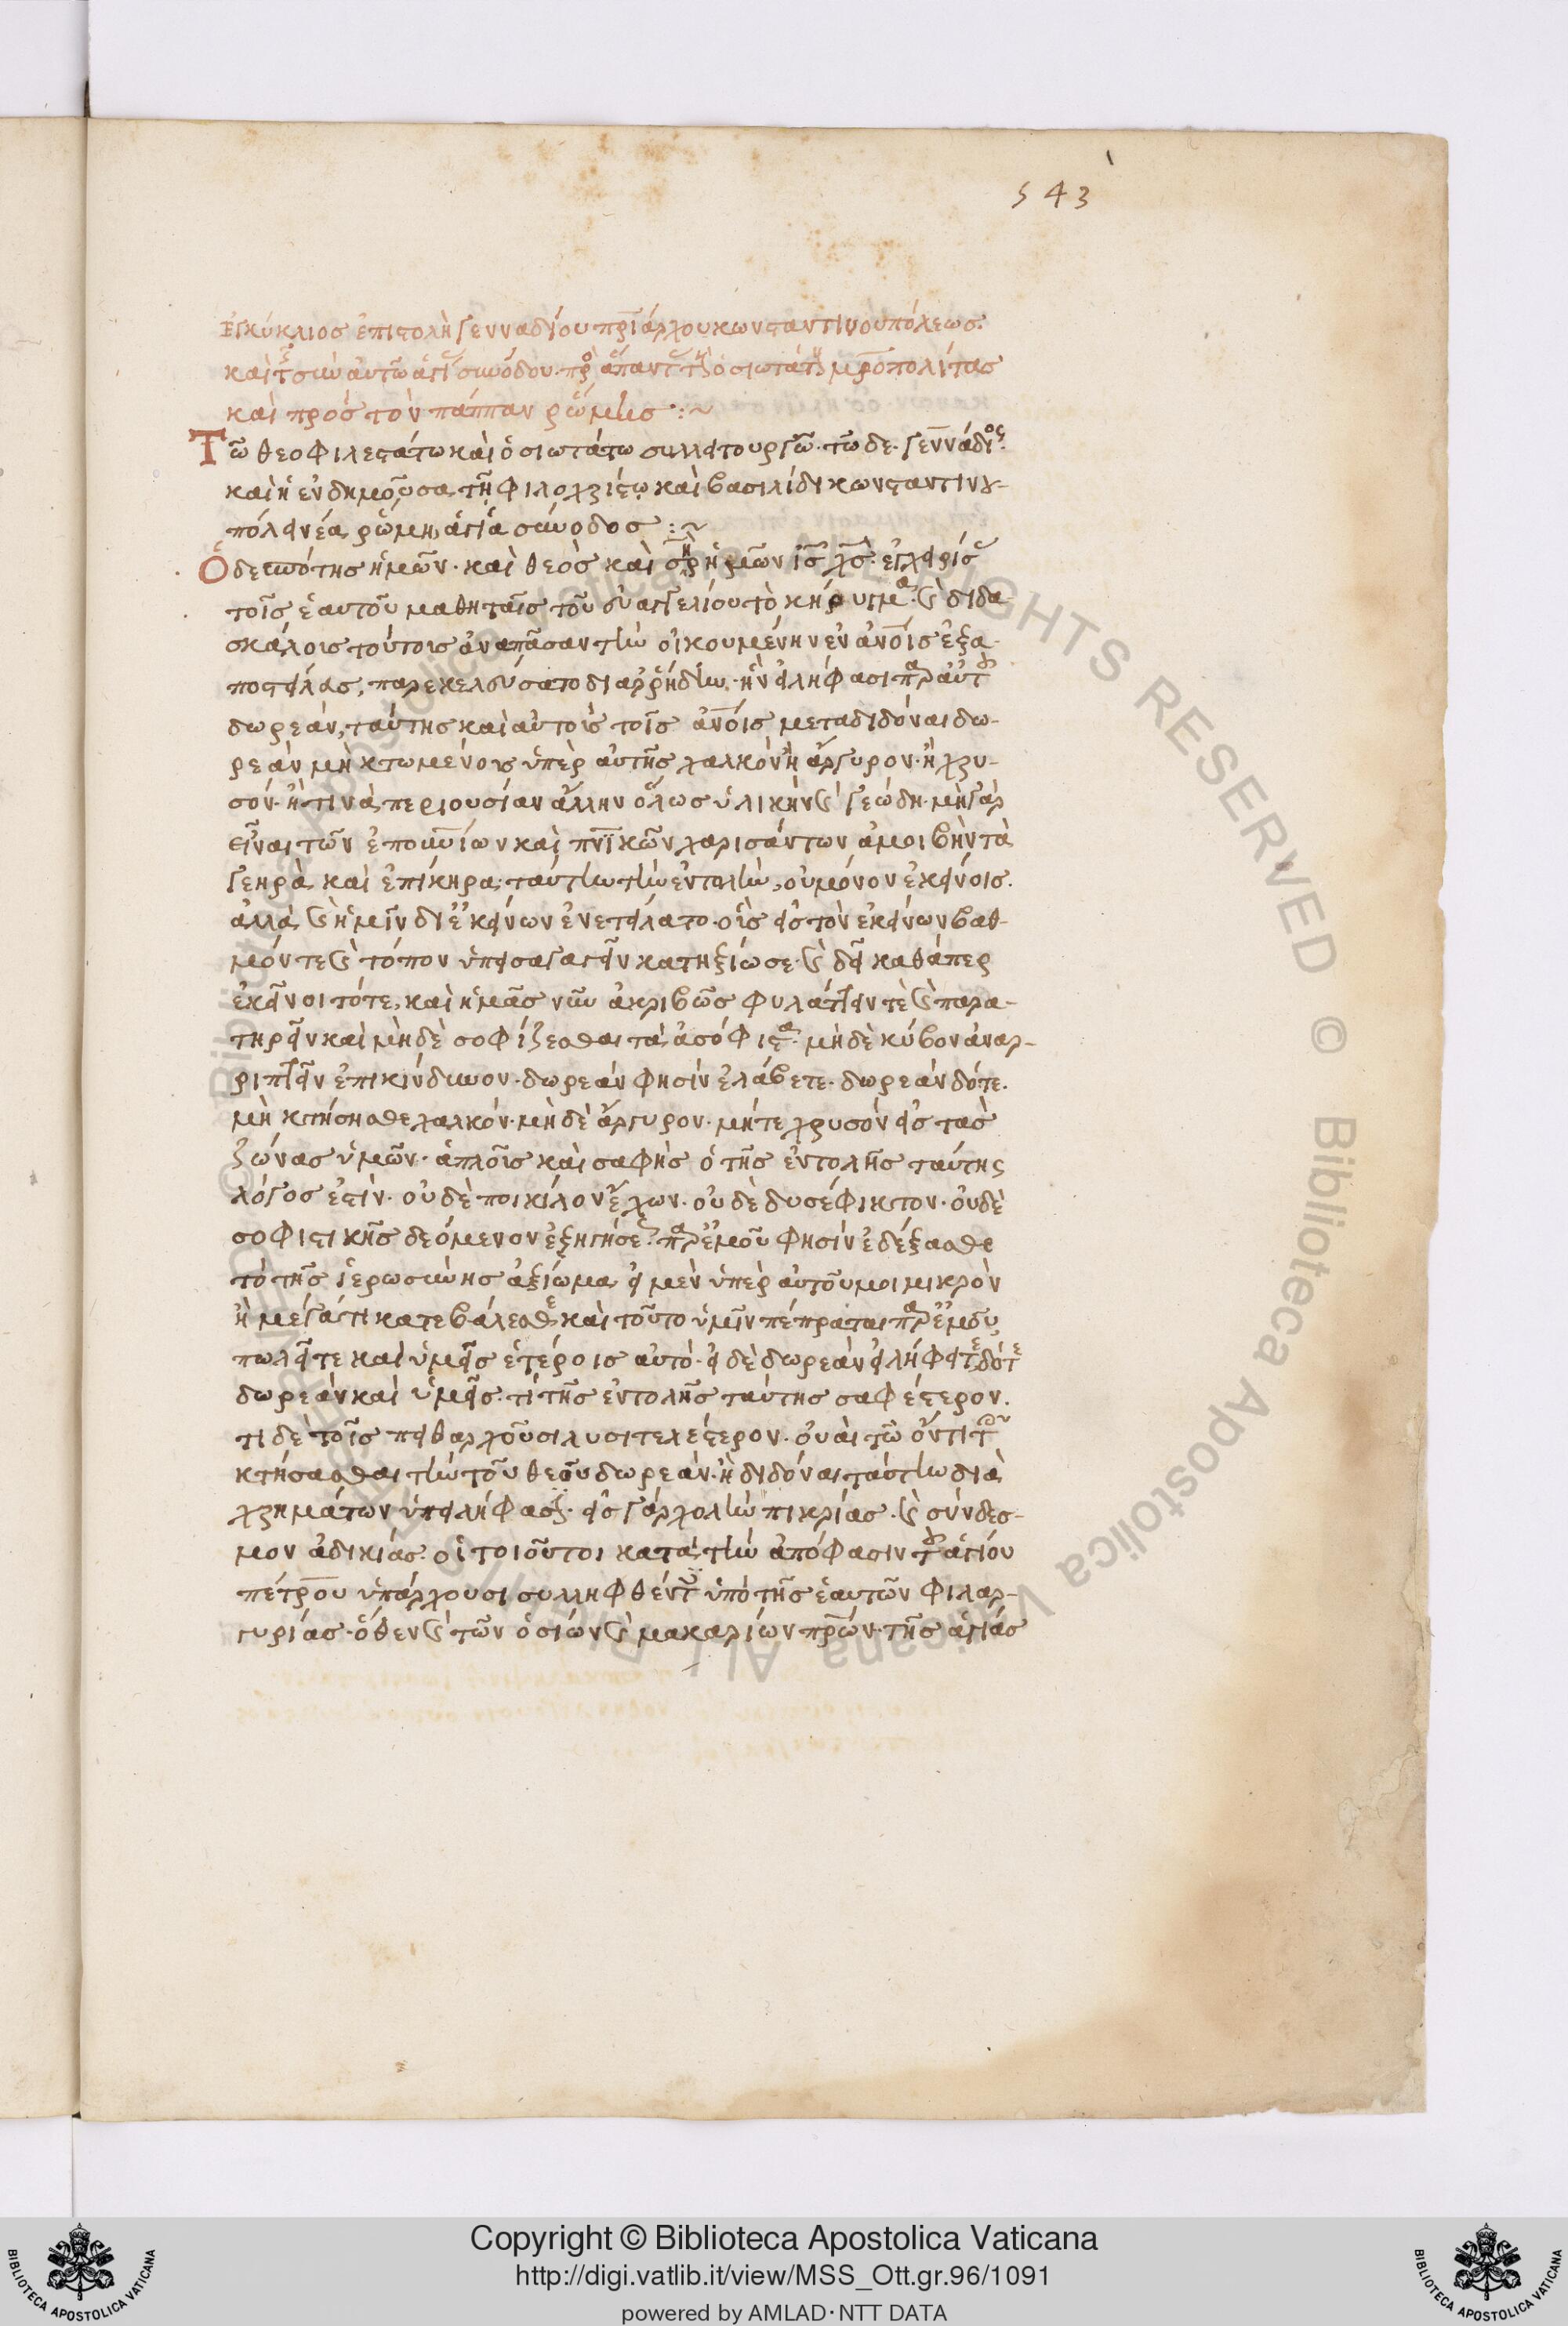 543
Ἐγκύκλιος ἐπιστολὴ γενναδίου πριάρχου κωνσταντινουπόλεως.
καὶ τῆς σὺν αὐτῶ ἁγί συνόδου. πρὸς ἅπαντ τοὺς ὁσιωτάτους μροπολίτας
καὶ πρὸς τὸν πάππαν ῥώμης :~
Τῶ θεοφιλεστάτω καὶ ὁσιωτάτω συλλειτουργῶ. τῶ δε. γεννάδιος.
καὶ ἡ ἐνδημοῦσα τῆ φιλοχρίστω καὶ βασιλίδι κωνσταντινου-
πόλει νέα ῥώμη, ἁγία σύνοδος :~
Ὁ δεσπότης ἡμῶν. καὶ θεὸς καὶ σηρ ἡμῶν ις χς. ἐγχειρίσ
τοῖς ἑαυτοῦ μαθηταῖς τοῦ εὐαγγελίου τὸ κήρυγμα. καὶ διδα-
σκάλους τούτους ἀνα πᾶσαν τὴν οἰκουμένην ἐν ἀνοις ἐξα-
ποστείλας, παρεκελεύσατο διαρρήδην. ἣν εἰλήφασι παρ αὐτοῦ
δωρεάν, ταύτης καὶ αὐτοὺς τοῖς ἀνοις μεταδιδόναι δω-
ρεὰν μὴ κτωμένους ὑπὲρ αὐτῆς χαλκὸν ἢ ἄργυρον. ἢ χρυ-
σόν. ἤ τινα περιουσίαν ἄλλην ὅλως ὑλικὴν καὶ γεώδη. μὴ γὰρ
εἶναι τῶν ἐπουνίων καὶ πνικῶν χαρισάντων ἀμοιβὴν τὰ
γεηρὰ καὶ ἐπίκηρα. ταύτην τὴν ἐντολὴν, οὐ μόνον ἐκείνοις.
ἀλλὰ καὶ ἡμῖν δι ἐκείνων ἐνετείλατο. οὓς εἰς τὸν ἐκείνων βαθ-
μόν τε καὶ τόπον ὑπεισαγαγεῖν κατηξίωσε. καὶ δεῖ καθάπερ
ἐκεῖνοι τότε, καὶ ἡμᾶς νῦν ἀκριβῶς φυλάττειν τὲ καὶ παρα-
τηρεῖν καὶ μὴ δὲ σοφίζεσθαι τὰ ἀσόφιστα. μὴ δὲ κύβον ἀναρ-
ριπτεῖν ἐπικίνδυνον. δωρεάν φησίν ἐλάβετε. δωρεὰν δότε.
μὴ κτήσησθε χαλκόν. μὴ δὲ ἄργυρον. μήτε χρυσὸν εἰς τὰς
ζώνας ὑμῶν. ἁπλοῦς καὶ σαφὴς ὁ τῆς ἐντολῆς ταύτης
λόγος ἐστίν. οὐδὲ ποικίλον ἔχων. οὐδὲ δυσέφικτον. οὐδὲ
σοφιστικῆς δεόμενον ἐξηγήσε. παρ ἐμοῦ φησίν ἐδέξασθε
τὸ τῆς ἱερωσύνης ἀξίωμα, εἰ μὲν ὑπὲρ αὐτοῦ μοι μικρὸν
ἢ μέγα τι κατεβάλεσθε καὶ τοῦτο ὑμῖν πέπραται παρ ἐμοῦ,
πωλεῖτε καὶ ὑμεῖς ἑτέροις αὐτό. εἰ δὲ δωρεὰν εἰλήφατε, δότε
δωρεὰν καὶ ὑμεῖς. τί τῆς ἐντολῆς ταύτης σαφέστερον.
τι δὲ τοῖς πειθαρχοῦσι λυσιτελέστερον. οὐαὶ τῶ ὄντι τῶν
κτήσασθαι τὴν τοῦ θεοῦ δωρεὰν. ἢ διδόναι ταύτην διὰ
χρημάτων ὑπειλήφασι. εἰς γὰρ χολὴν πικρίας. καὶ σύνδεσ-
μον ἀδικίας. οἱ τοιοῦτοι κατὰ τὴν ἀπόφασιν τοῦ ἁγίου
πέτρου ὑπάρχουσι συλληφθέντες ὑπὸ τῆς ἑαυτῶν φιλαρ-
γυρίας. ὅθεν καὶ τῶν ὁσίων καὶ μακαρίων πρων. τῆς ἁγίας
© Biblioteca Apostolica Vaticana ALL RIGHTS RESERVED
© Biblioteca Apostolica Vaticana ALL RIGHTS RESERVED
Copyright © Biblioteca Apostolica Vaticana
http://digi.vatlib.it/view/MSS_Ott.gr.96/1091
powered by AMLAD·NTT DATA
BIBLIOTECA APOSTOLICA VATICANA
BIBLIOTECA APOSTOLICA VATICANA